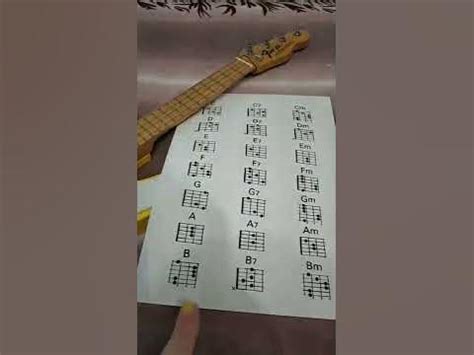 C7 Cm
D D7 Dm
E E7 Em
F F7 Fm
G G7 Gm
A A7 Am
B B7 Bm
x